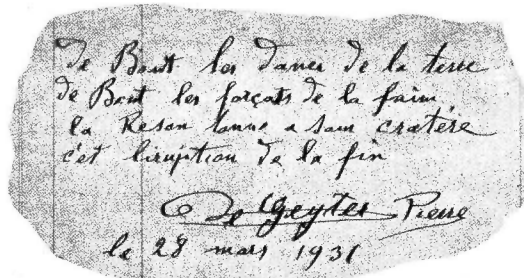 de Bout les danés de la terre
de Bout les forçats de la faim
la Reson tonne a son cratére
c'et liruption de la fin
De Geyter Pierre
le 28 mars 1931